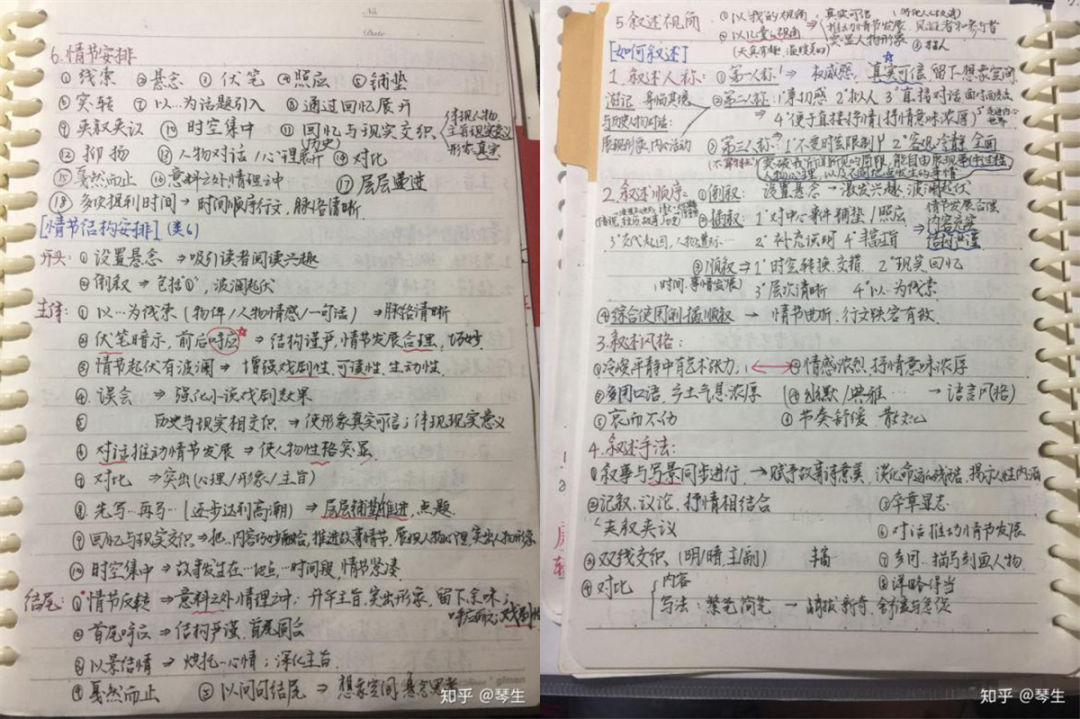 6.情节安排
①线索 ②悬念 ③伏笔 ④照应 ⑤铺垫
⑥突转 ⑦以…为话题引入 ⑧通过回忆展开
⑨夹叙夹议 ⑩时空集中 ⑪回忆与现实交织
(历史)
(体现人物
主旨现实意义
形象真实
⑫抑扬 ⑬人物对话/心理 ⑭对比
⑮戛然而止 ⑯意料之外情理之中 ⑰层层递进
⑱多次提到时间→时间顺序行文,脉络清晰
[情节结构安排](类6)
开头:①设置悬念⇒吸引读者阅读兴趣
②倒叙→包括①,波澜起伏
主体:①以…为线索(物件/人物情感/一句话)⇒脉络清晰
②伏笔暗示,前后呼应→结构严谨,情节发展合理,巧妙
③情节起伏有波澜→增强戏剧性,可读性,生动性.
④误会→强化小说戏剧效果
⑤历史与现实相交织→使形象真实可信;体现现实意义
⑥对话推动情节发展→使人物性格突显
⑦对比→突出(心理/形象/主旨)
⑧先写…再写…(逐步达到高潮)→层层铺垫推进,点题
⑨回忆与现实交织→把…内容巧妙融合,推进故事情节,展现人物心理,突出人物形象
⑩时空集中→故事发生在…地点,一时间段,情节紧凑
结尾:①情节反转→意料之外情理之中;升华主旨,突出形象,留下余味;
呼应前文;戏剧性
②首尾呼应→结构严谨,首尾圆合
③以景结情→烘托…心情;深化主旨.
④戛然而止 ⑤以问句结尾→想象空间,悬念思考
知乎 @琴生
5.叙述视角 ①以我的视角→真实可信
②以儿童视角
推动情节发展 见证者和参与者
突显人物形象
(天真有趣,温暖美好) ③指人
[如何叙述]
1.叙述人称:①第一人称→权威感,真实可信,留下想象空间
游记 身临其境 ②第二人称→1°亲切感 2°拟人 3°直接对话
与历史人物对话: 4°便于直接抒情(抒情意味浓厚)
展现形象,内心活动 ③第三人称→1°不受时空限制 2°客观冷静,全面
2.叙述顺序:①倒叙:设置悬念→激发兴趣,波澜起伏
②插叙:1°对中心事件铺垫/照应 情节发展合理
内容充实
2°补充说明 4°丰富主旨 结构严谨
③顺叙→1°时空转换,交错 2°现实回忆
(时间,事情发展) 3°层次清晰 4°以…为线索
④综合使用倒插顺叙→情节曲折,行文跌宕有致.
3.叙述风格:
①冷峻平静中有艺术张力, ②情感浓烈,抒情意味浓厚
③多用口语,乡土气息浓厚 (④幽默/典雅…→语言风格)
⑤哀而不伤 ⑥节奏舒缓,散文化
4.叙述手法:
①叙事与写景同步进行→赋予故事诗意美,淡化命运的残酷,揭示人性内涵
②记叙、议论,抒情相结合 ⑤卒章显志
夹叙夹议 ⑥对话推动情节发展
③双线交织(明/暗,主/副) ⑦多用…描写刻画人物
④对比 内容 ⑧详略得当
写法:繁笔简笔
知乎 @琴生